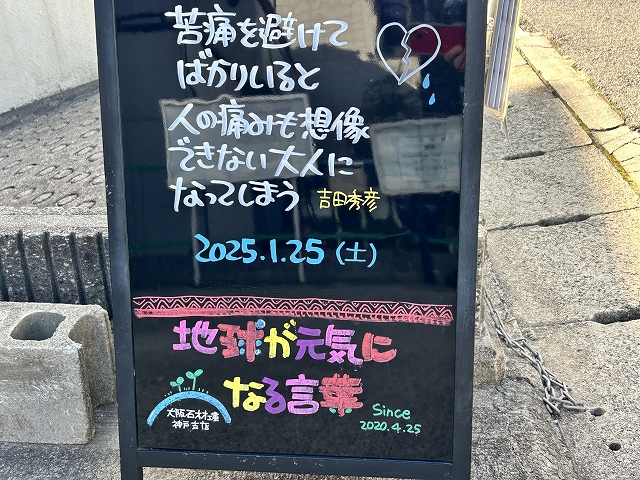 苦痛を避けて
ばかりいると
人の痛みも想像
できない大人に
なってしまう 吉田秀彦
2025.1.25 (土)
地球が元気に
なる言葉
Since
2020.4.25
大阪石材工業
神戸店